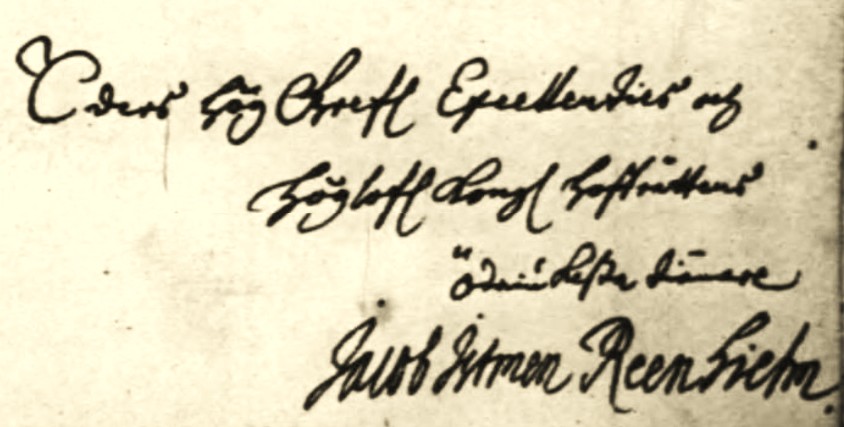 Eders Hög Grefl Excellenties och
Höglofl Kongl Hofrättens
ödmiukesta tiänare
Jacob Istmen Reenhielm.